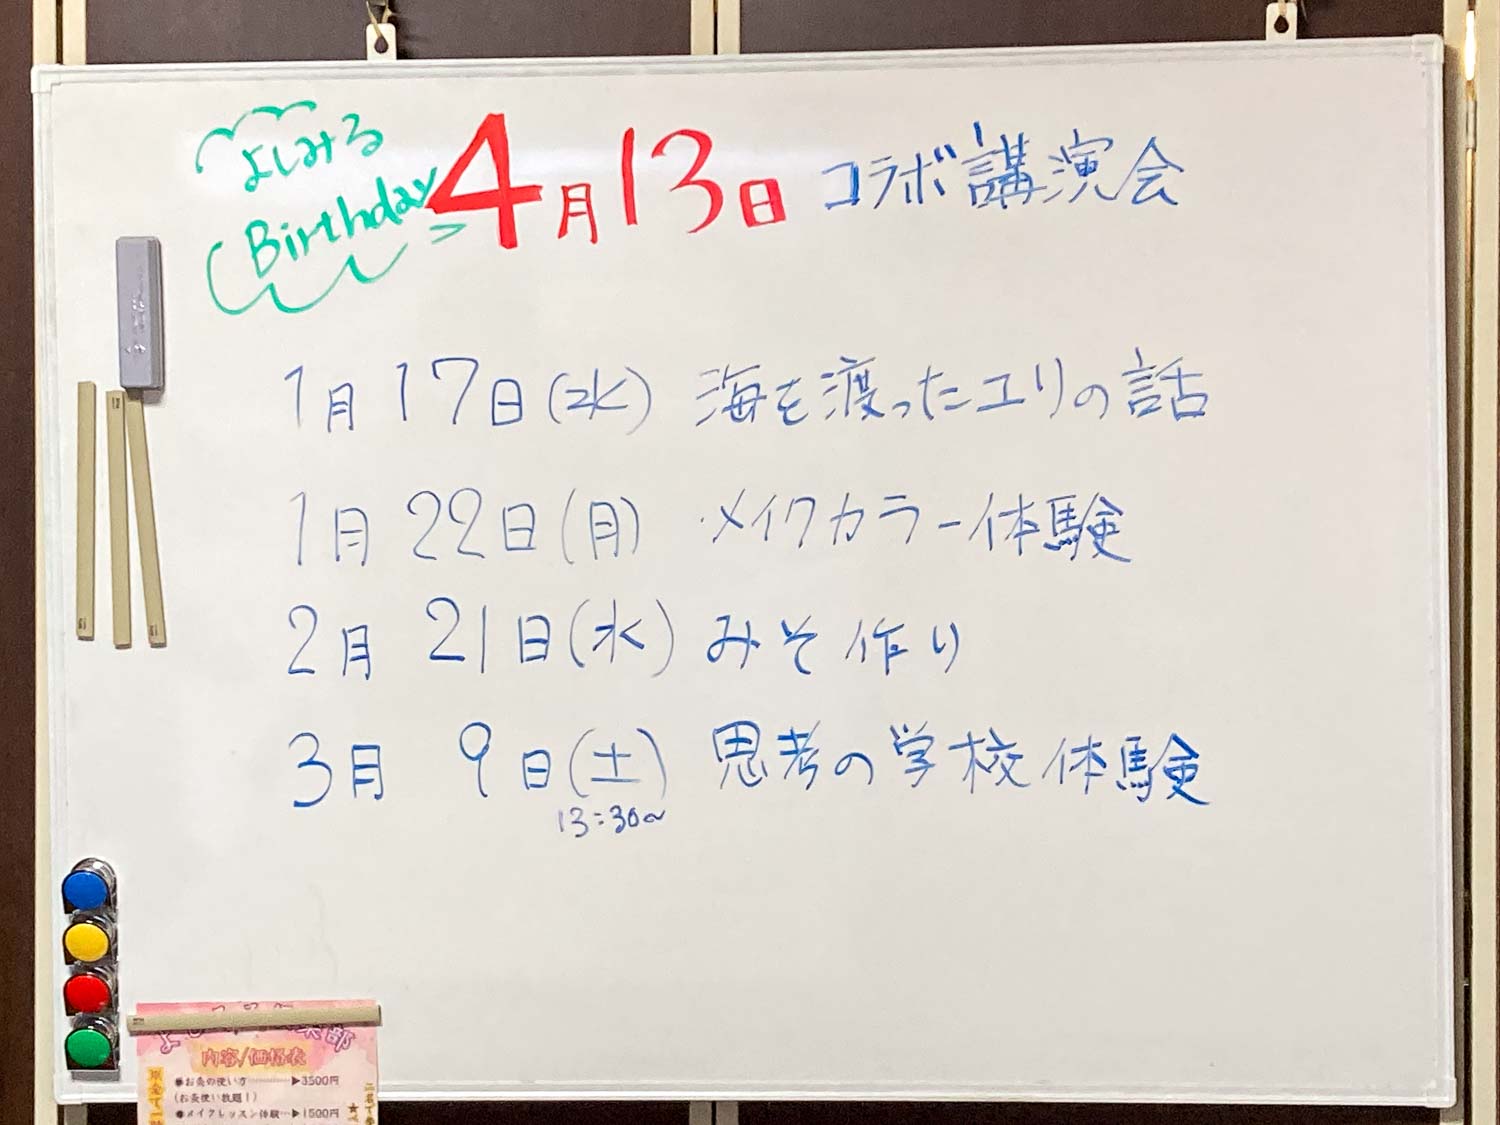 よしみる
Birthday
4月13日 コラボ講演会
1月17日(水) 海を渡ったユリの話
1月22日(月) メイクカラー体験
2月21日(水) みそ作り
3月9日(土) 思考の学校体験
13:30~
内容/価格表
●お灸の使い方…………▶3500円
(お灸使い放題!)
●メイクレッスン体験…▶1500円